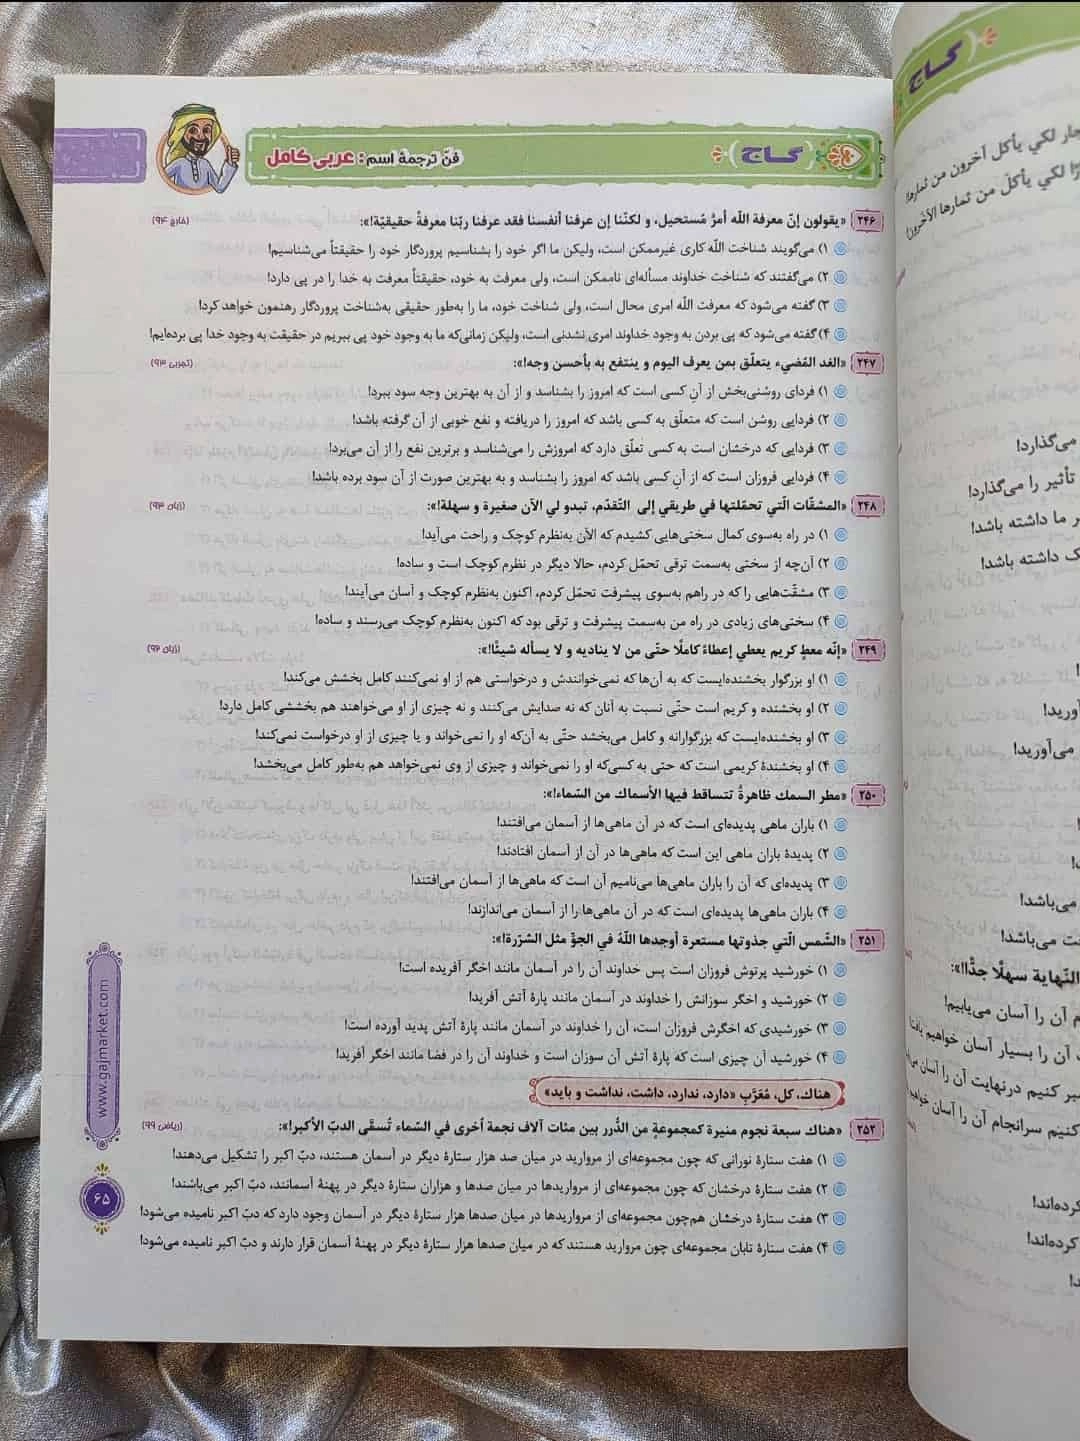 گاج
فنّ ترجمهٔ اسم: عربی کامل
۲۴۶ «یقولون إنّ معرفة اللّه أمرٌ مُستحیل، و لکنّنا إن عرفنا أنفسنا فقد عرفنا ربّنا معرفةً حقیقیّة!»: (خارج ۹۴)
۱) می‌گویند شناخت اللّه کاری غیرممکن است، ولیکن ما اگر خود را بشناسیم پروردگار خود را حقیقتاً می‌شناسیم!
۲) می‌گفتند که شناخت خداوند مسأله‌ای ناممکن است، ولی معرفت به خود، حقیقتاً معرفت به خدا را در پی دارد!
۳) گفته می‌شود که معرفت اللّه امری محال است، ولی شناخت خود، ما را به‌طور حقیقی به‌شناخت پروردگار رهنمون خواهد کرد!
۴) گفته می‌شود که پی بردن به وجود خداوند امری نشدنی است، ولیکن زمانی‌که ما به وجود خود پی ببریم در حقیقت به وجود خدا پی برده‌ایم!
۲۴۷ «الغد المُضيء یتعلّق بمن یعرف الیوم و ینتفع به بأحسن وجه!»: (تجربی ۹۳)
۱) فردای روشنی‌بخش از آنِ کسی است که امروز را بشناسد و از آن به بهترین وجه سود ببرد!
۲) فردایی روشن است که متعلّق به کسی باشد که امروز را دریافته و نفع خوبی از آن گرفته باشد!
۳) فردایی که درخشان است به کسی تعلّق دارد که امروزش را می‌شناسد و برترین نفع را از آن می‌برد!
۴) فردایی فروزان است که از آنِ کسی باشد که امروز را بشناسد و به بهترین صورت از آن سود برده باشد!
۲۴۸ «المشقّات الّتي تحمّلتها في طریقي إلی التّقدّم، تبدو لي الآن صغیرة و سهلة!»: (زبان ۹۳)
۱) در راه به‌سوی کمال سختی‌هایی کشیدم که الآن به‌نظرم کوچک و راحت می‌آید!
۲) آن‌چه از سختی به‌سمت ترقی تحمّل کردم، حالا دیگر در نظرم کوچک است و ساده!
۳) مشقّت‌هایی را که در راهم به‌سوی پیشرفت تحمّل کردم، اکنون به‌نظرم کوچک و آسان می‌آیند!
۴) سختی‌های زیادی در راه من به‌سمت پیشرفت و ترقی بود که اکنون به‌نظرم کوچک می‌رسند و ساده!
۲۴۹ «إنّه معطٍ کریم یعطي إعطاءً کاملًا حتّی من لا ینادیه و لا یسأله شیئًا!»: (زبان ۹۶)
۱) او بزرگوار بخشنده‌ایست که به آن‌ها که نمی‌خوانندش و درخواستی هم از او نمی‌کنند کامل بخشش می‌کند!
۲) او بخشنده و کریم است حتّی نسبت به آنان که نه صدایش می‌کنند و نه چیزی از او می‌خواهند هم بخششی کامل دارد!
۳) او بخشنده‌ایست که بزرگوارانه و کامل می‌بخشد حتّی به آن‌که او را نمی‌خواند و یا چیزی از او درخواست نمی‌کند!
۴) او بخشندهٔ کریمی است که حتی به کسی‌که او را نمی‌خواند و چیزی از وی نمی‌خواهد هم به‌طور کامل می‌بخشد!
۲۵۰ «مطر السمك ظاهرةُ تتساقط فیها الأسماك من السّماء!»:
۱) باران ماهی پدیده‌ای است که در آن ماهی‌ها از آسمان می‌افتند!
۲) پدیدهٔ باران ماهی این است که ماهی‌ها در آن از آسمان افتادند!
۳) پدیده‌ای که آن را باران ماهی‌ها می‌نامیم آن است که ماهی‌ها از آسمان می‌افتند!
۴) باران ماهی‌ها پدیده‌ای است که در آن ماهی‌ها را از آسمان می‌اندازند!
۲۵۱ «الشّمس الّتي جذوتها مستعرة أوجدها اللّهُ في الجوّ مثل الشرّرة!»:
۱) خورشید پرتوش فروزان است پس خداوند آن را در آسمان مانند اخگر آفریده است!
۲) خورشید و اخگر سوزانش را خداوند در آسمان مانند پارهٔ آتش آفرید!
۳) خورشیدی که اخگرش فروزان است، آن را خداوند در آسمان مانند پارهٔ آتش پدید آورده است!
۴) خورشید آن چیزی است که پارهٔ آتش آن سوزان است و خداوند آن را در فضا مانند اخگر آفرید!
هناك، کل، مُعَرَّبِ «دارد، ندارد، داشت، نداشت و باید»
۲۵۲ «هناك سبعة نجوم منیرة کمجموعةٍ من الدُّرر بین مئات آلاف نجمة أخری في السّماء تُسقَی الدبّ الأکبر!»: (ریاضی ۹۹)
۱) هفت ستارهٔ نورانی که چون مجموعه‌ای از مروارید در میان صد هزار ستارهٔ دیگر در آسمان هستند، دبّ اکبر را تشکیل می‌دهند!
۲) هفت ستارهٔ درخشان که چون مجموعه‌ای از مرواریدها در میان صدها و هزاران ستارهٔ دیگر در پهنهٔ آسمانند، دبّ اکبر می‌باشند!
۳) هفت ستارهٔ درخشان هم‌چون مجموعه‌ای از مرواریدها در میان صدها هزار ستارهٔ دیگر در آسمان وجود دارد که دبّ اکبر نامیده می‌شود!
۴) هفت ستارهٔ تابان مجموعه‌ای چون مروارید هستند که در میان صدها هزار ستارهٔ دیگر در پهنهٔ آسمان قرار دارند و دبّ اکبر نامیده می‌شود!
www.gajmarket.com
۶۵
گاج
جار لکي یأکل آخرون من ثمارها!
لکي یأکل من ثمارها الآخرون!
می‌گذارد!
تأثیر را می‌گذارد!
ر ما داشته باشد!
ک داشته باشد!
آورید!
می‌آورید!
می‌باشد!
ت می‌باشد!
النّهایة سهلًا جدًّا!»:
م آن را آسان می‌یابیم!
آن را بسیار آسان خواهیم
بر کنیم درنهایت آن را آسان
کنیم سرانجام آن را آسان
کرده‌اند!
کرده‌اند!